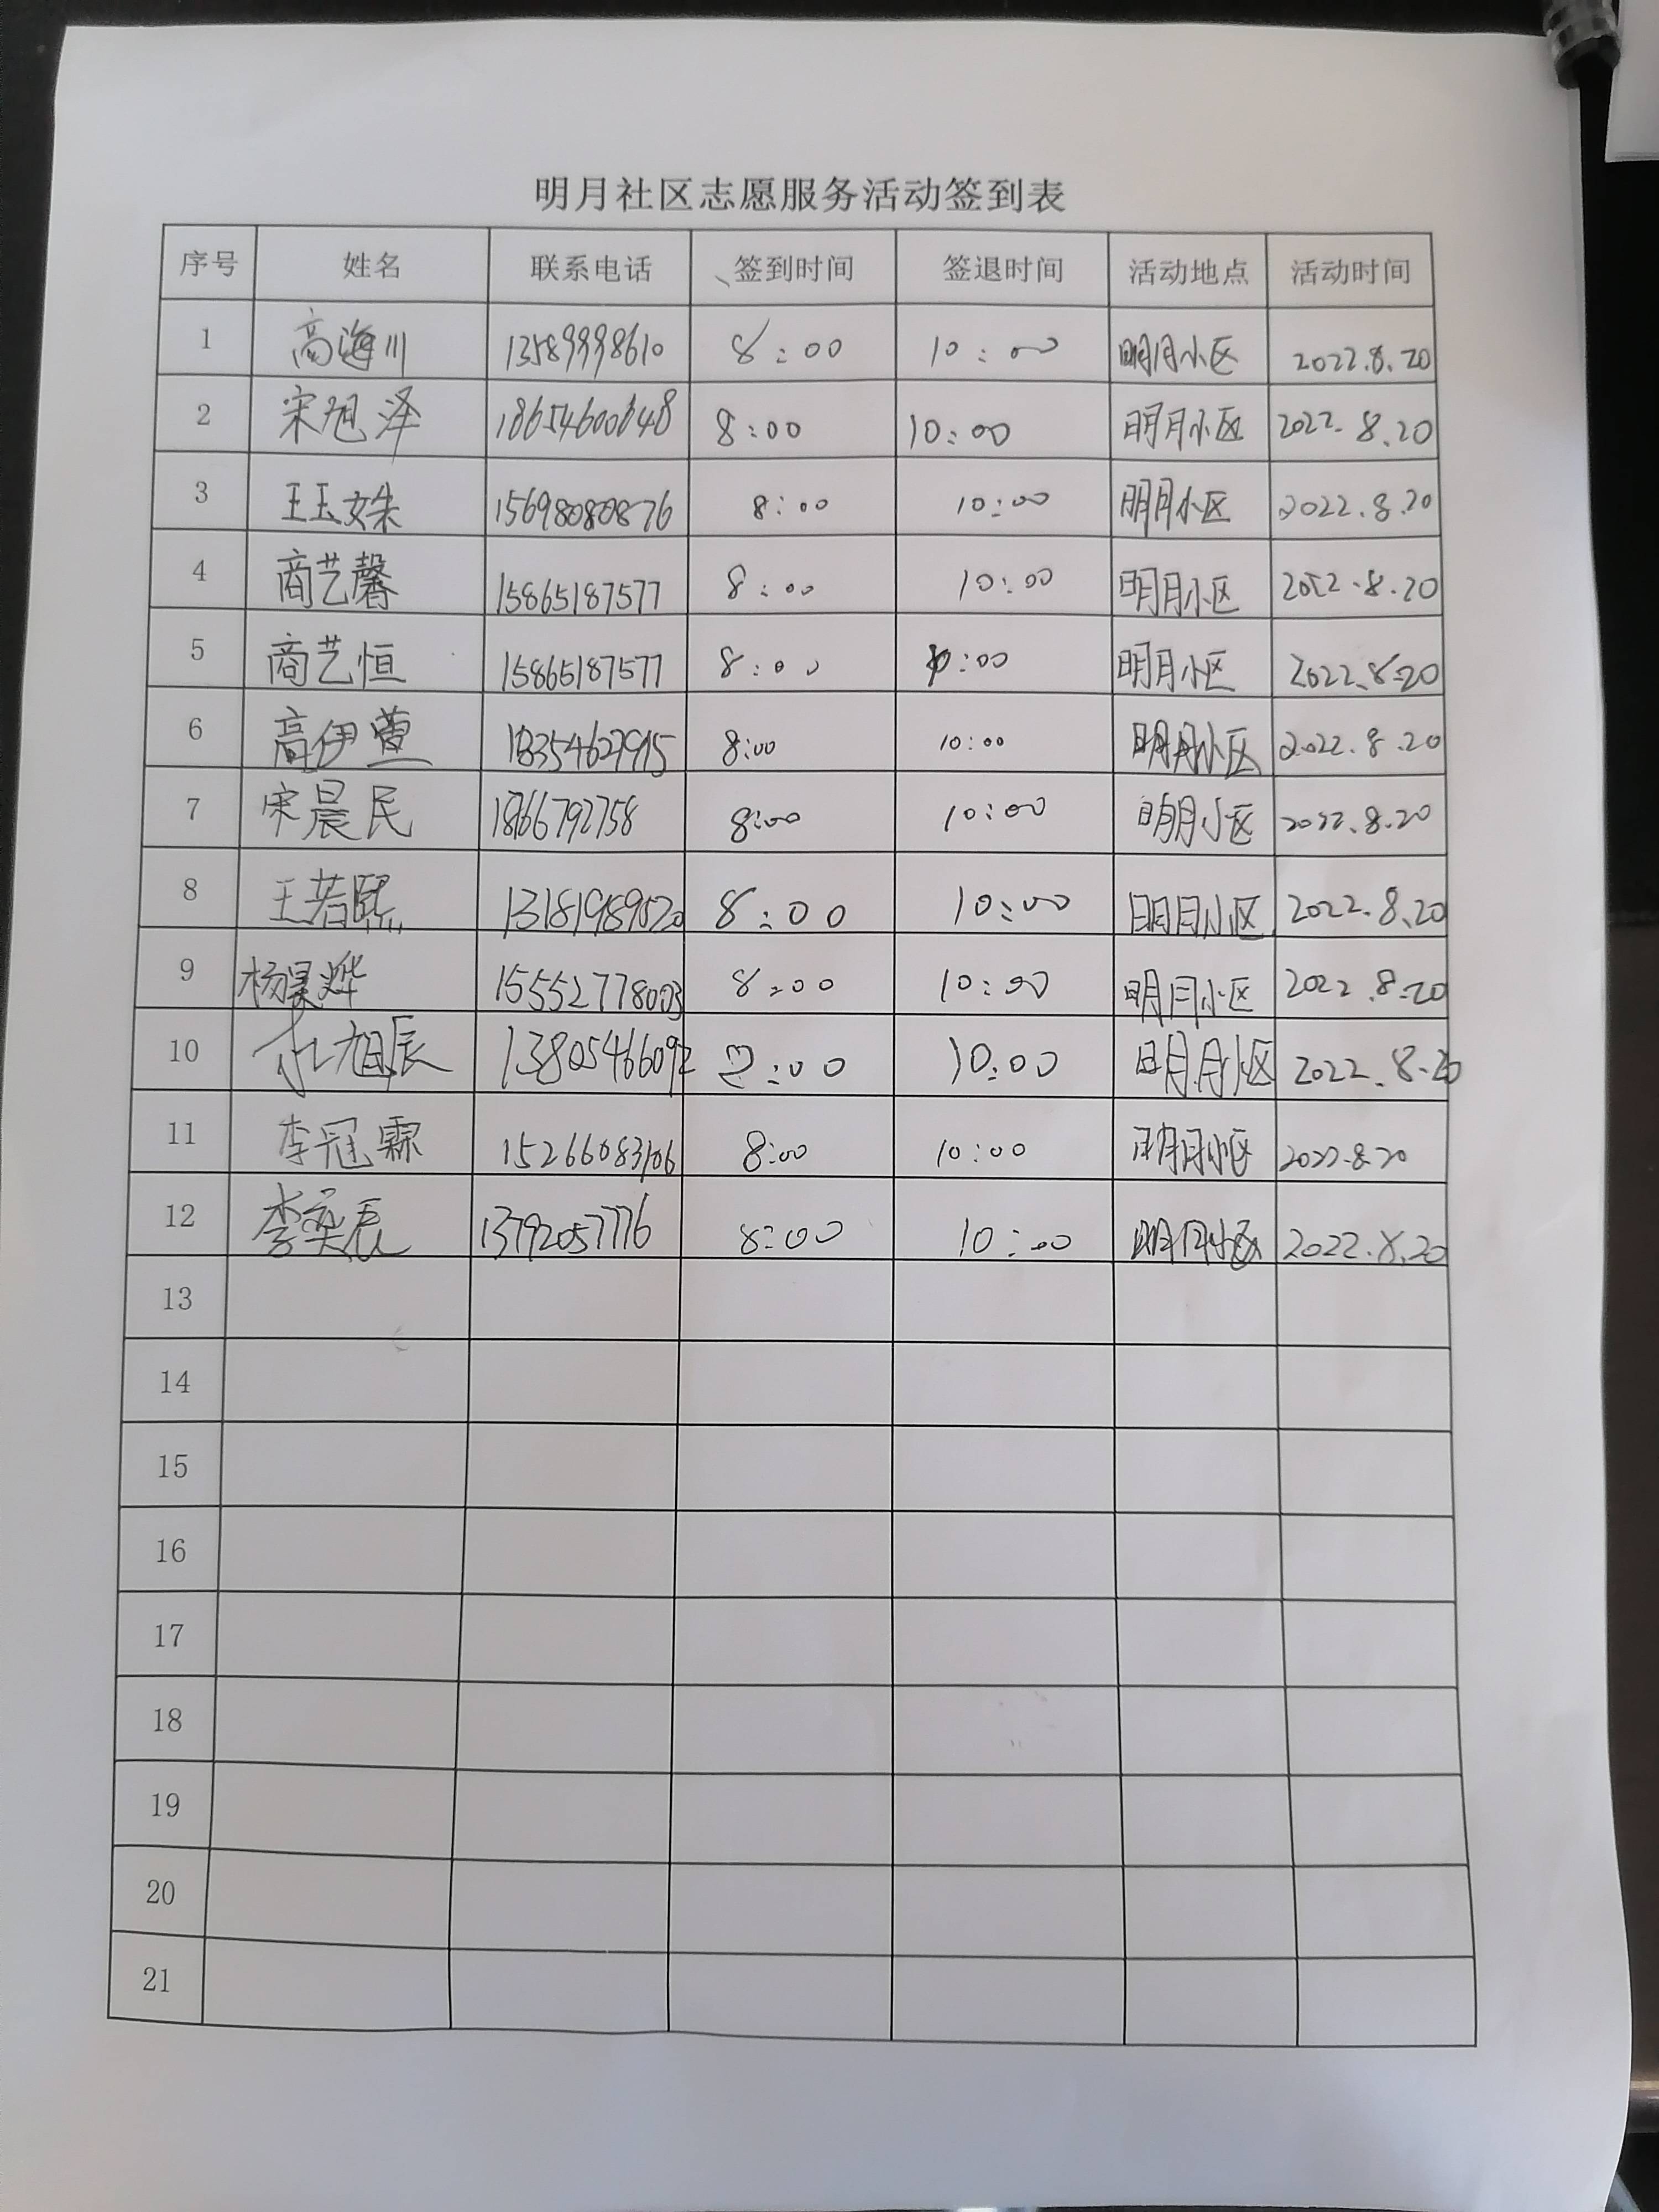 明月社区志愿服务活动签到表
序号 姓名 联系电话 签到时间 签退时间 活动地点 活动时间
1 高海川 13589998610 8:00 10:00 明月小区 2022.8.20
2 宋旭泽 18654600648 8:00 10:00 明月小区 2022.8.20
3 王玉姝 15698080876 8:00 10:00 明月小区 2022.8.20
4 商艺馨 15865187577 8:00 10:00 明月小区 2022.8.20
5 商艺恒 15865187577 8:00 10:00 明月小区 2022.8.20
6 高伊萱 18354627915 8:00 10:00 明月小区 2022.8.20
7 宋晨民 1866792758 8:00 10:00 明月小区 2022.8.20
8 王若熙 13181989020 8:00 10:00 明月小区 2022.8.20
9 杨昊烨 15552778003 8:00 10:00 明月小区 2022.8.20
10 旭辰 13805466092 :00 10:00 明月小区 2022.8.20
11 李冠霖 15266083106 8:00 10:00 明月小区 2022.8.20
12 李奕辰 13792057776 8:00 10:00 明月小区 2022.8.20
13
14
15
16
17
18
19
20
21